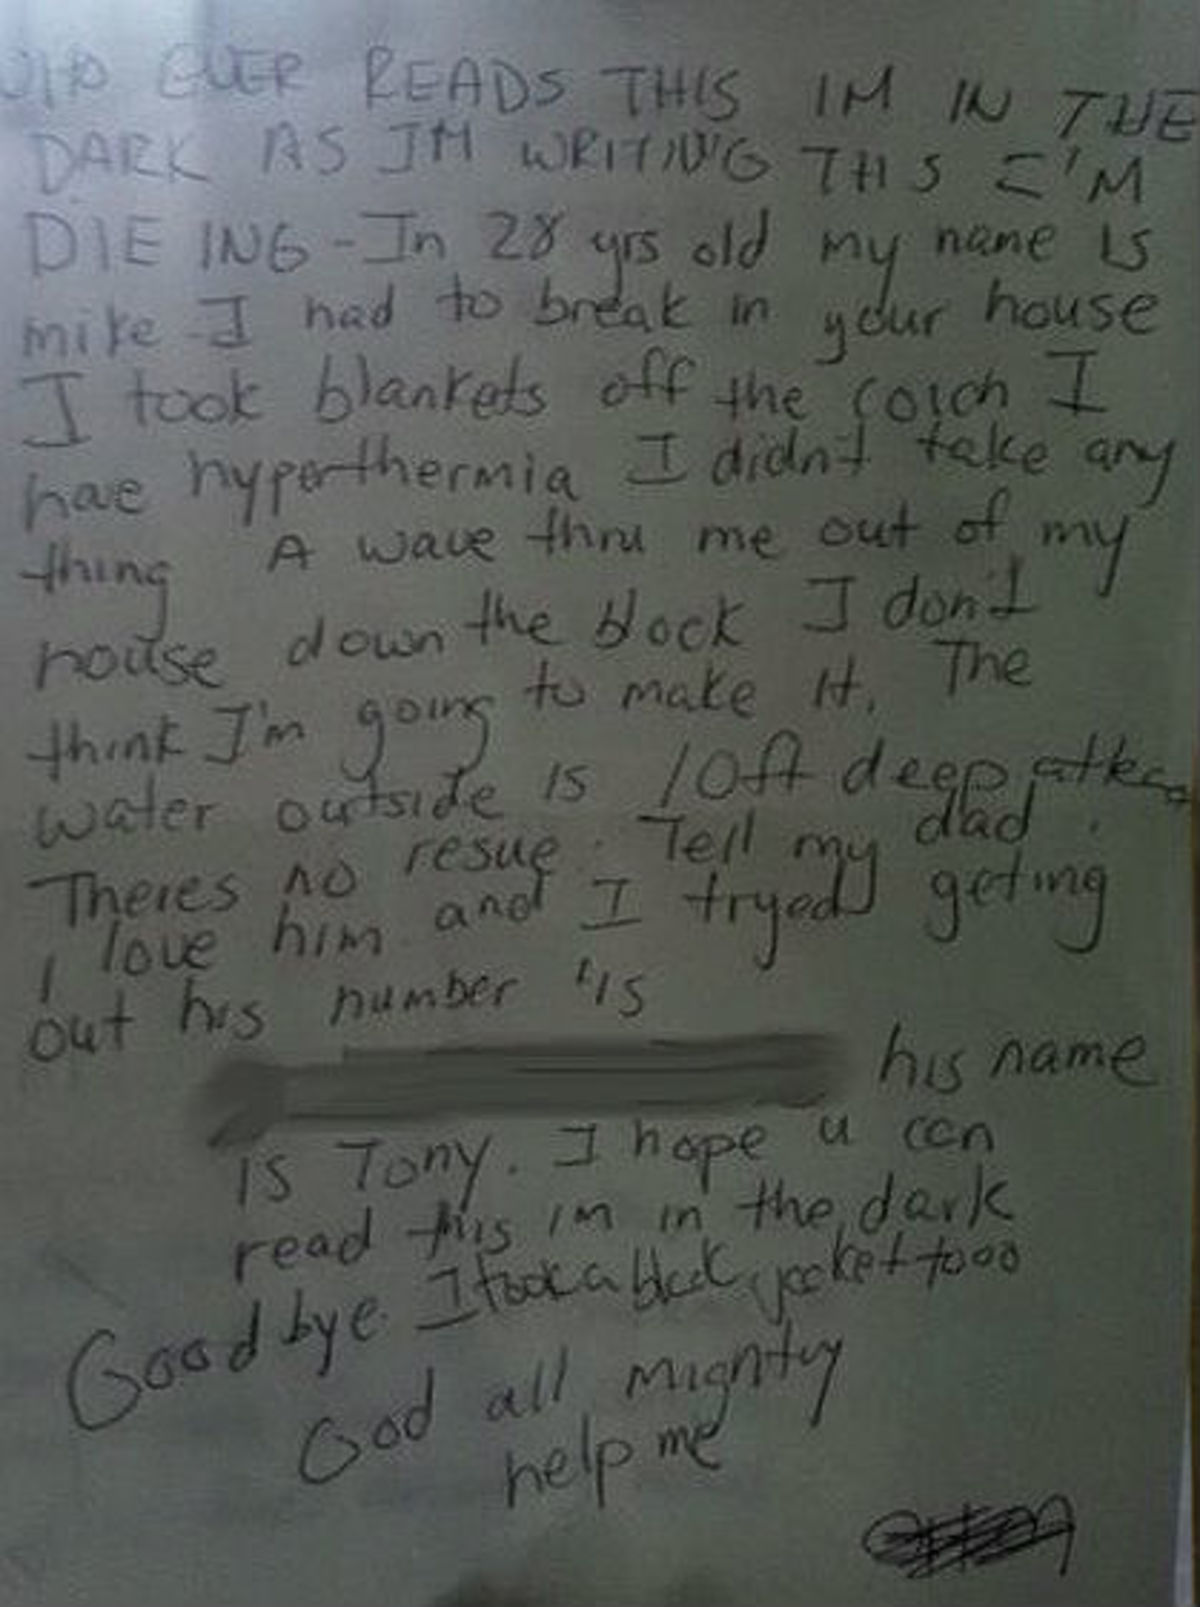 WHO EVER READS THIS IM IN THE
DARK AS IM WRITING THIS I'M
DIE ING - Im 28 yrs old my name is
mike I had to break in your house
I took blankets off the coich I
hae hyperthermia I didn't take any
thing A wave thru me out of my
house down the block I don't
think I'm going to make it. The
water outside is 10ft deep atleas
Theres no resue. Tell my dad
I love him and I tryed geting
out his number is
his name
is Tony. I hope u can
read this im in the dark
Good bye. I took a black jacket tooo
God all mighty
help me